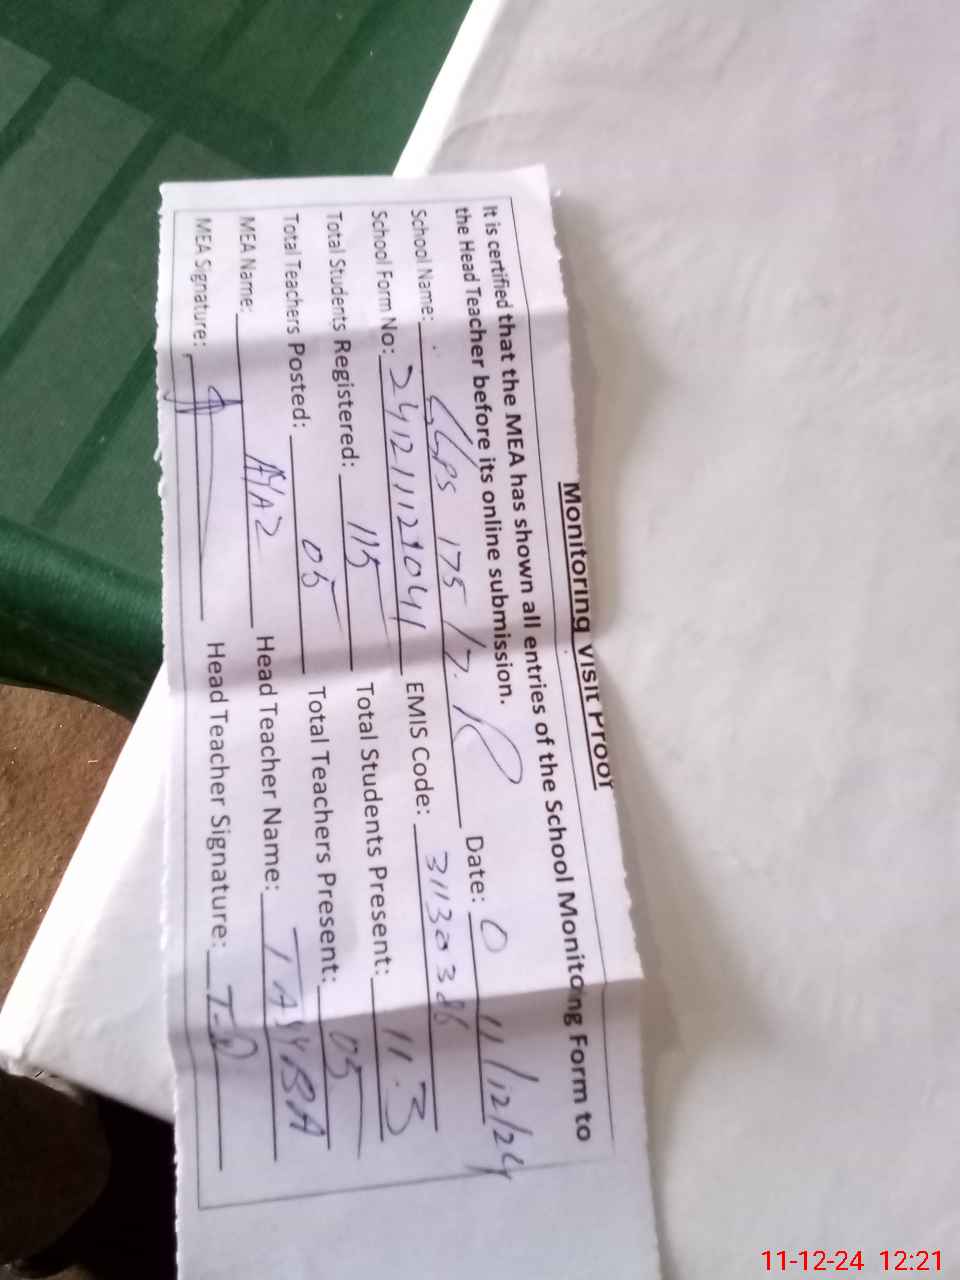 Monitoring Visit Proof
It is certified that the MEA has shown all entries of the School Monitoring Form to
the Head Teacher before its online submission.
School Name: GGPS 175/7.R Date: 11/12/24
School Form No: 241211121041 EMIS Code: 31130386
Total Students Registered: 115 Total Students Present: 113
Total Teachers Posted: 05 Total Teachers Present: 05
MEA Name: AYAZ Head Teacher Name: TAYYBA
MEA Signature: Head Teacher Signature:
11-12-24 12:21